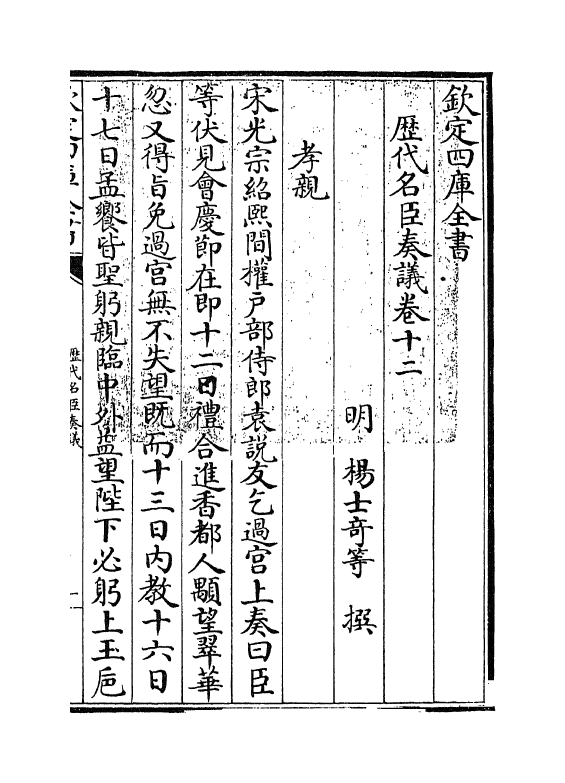 欽定四庫全書
歷代名臣奏議卷十二
明　楊士竒等　撰
孝親
宋光宗紹熙間權户部侍郎袁説友乞過宫上奏曰臣
等伏見會慶節在即十二日禮合進香都人顒望翠華
忽又得旨免過宫無不失望既而十三日内教十六日
十七日孟饗皆聖躬親臨中外益望陛下必躬上玉巵
欽定四庫全書
歷代名臣奏議
一